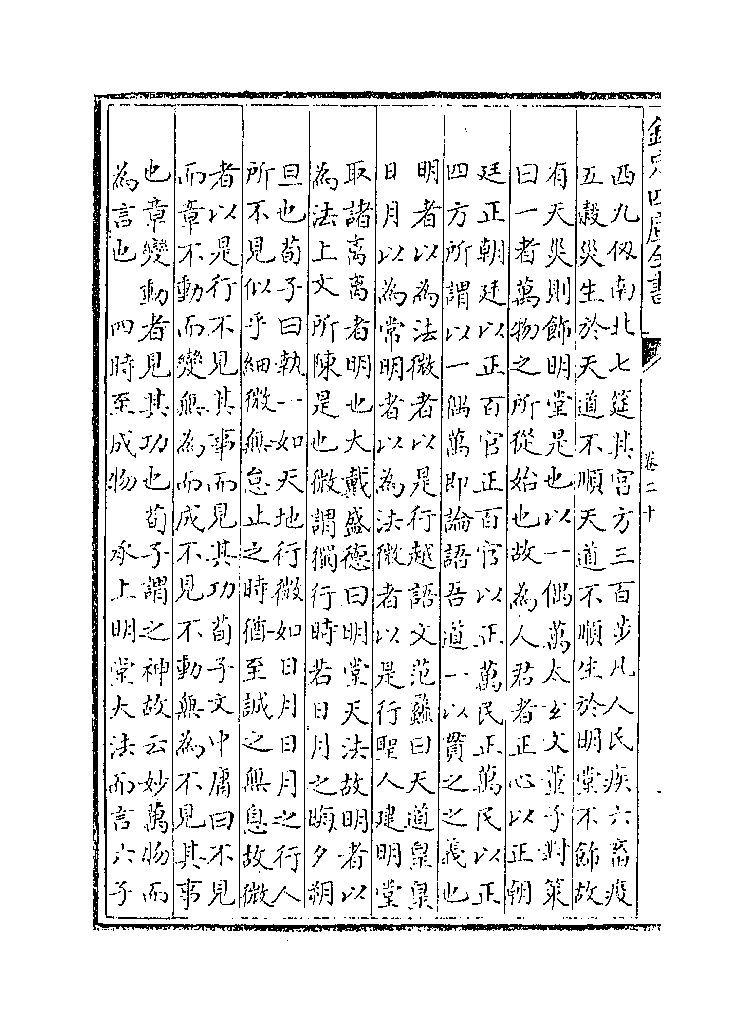 欽定四庫全書
卷二十
西九仭南北七筵其宮方三百步凡人民疾六畜疫
五穀災生於天道不順天道不順生於明堂不飾故
有天災則飾明堂是也以一偶萬太玄文董子對策
曰一者萬物之所從始也故為人君者正心以正朝
廷正朝廷以正百官正百官以正萬民正萬民以正
四方所謂以一偶萬即論語吾道一以貫之之義也
明者以為法微者以是行越語文范蠡曰天道皇皇
日月以為常明者以為法微者以是行聖人建明堂
取諸离离者明也大戴盛德曰明堂天法故明者以
為法上文所陳是也微謂獨行時若日月之晦夕朔
旦也荀子曰執一如天地行微如日月日月之行人
所不見似乎細微無怠止之時猶至誠之無息故微
者以是行不見其事而見其功荀子文中庸曰不見
而章不動而變無為而成不見不動無為不見其事
也章變動者見其功也荀子謂之神故云妙萬物而
為言也　四時至成物　承上明堂大法而言六子